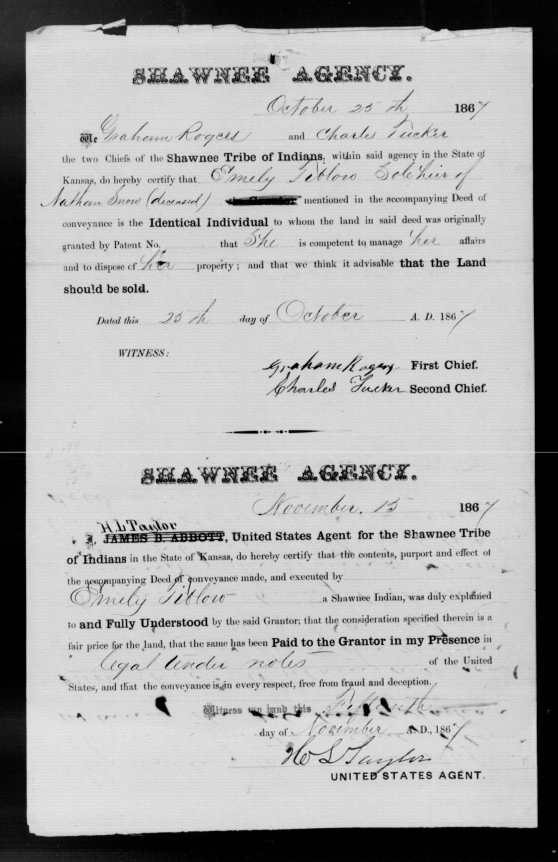 SHAWNEE AGENCY.
October 25th 1867
We Graham Rogers and Charles Tucker
the two Chiefs of the Shawnee Tribe of Indians, within said agency in the State of
Kansas, do hereby certify that Emely Tiblow Sole heir of
Nathan Snow (deceased) the Grantor mentioned in the accompanying Deed of
conveyance is the Identical Individual to whom the land in said deed was originally
granted by Patent No. that She is competent to manage her affairs
and to dispose of her property; and that we think it advisable that the Land
should be sold.
Dated this 25th day of October A. D. 1867
WITNESS:
Graham Rogers First Chief.
Charles Tucker Second Chief.
SHAWNEE AGENCY.
November. 15 1867
H L Taylor
I, JAMES B. ABBOTT, United States Agent for the Shawnee Tribe
of Indians in the State of Kansas, do hereby certify that the contents, purport and effect of
the accompanying Deed of conveyance made, and executed by
Emely Tiblow a Shawnee Indian, was duly explained
to and Fully Understood by the said Grantor; that the consideration specified therein is a
fair price for the land, that the same has been Paid to the Grantor in my Presence in
legal tender notes of the United
States, and that the conveyance is, in every respect, free from fraud and deception.
Witness my hand this Fifteenth
day of November A. D., 1867
H L Taylor
UNITED STATES AGENT.